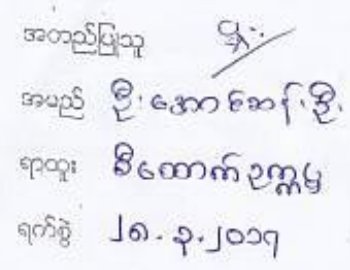 အတည်ပြုသူ
အမည် ဦးအောင်ဆန်းဦး
ရာထူး စီထောက်ဥက္ကဋ္ဌ
ရက်စွဲ ၂၈.၃.၂၀၁၇